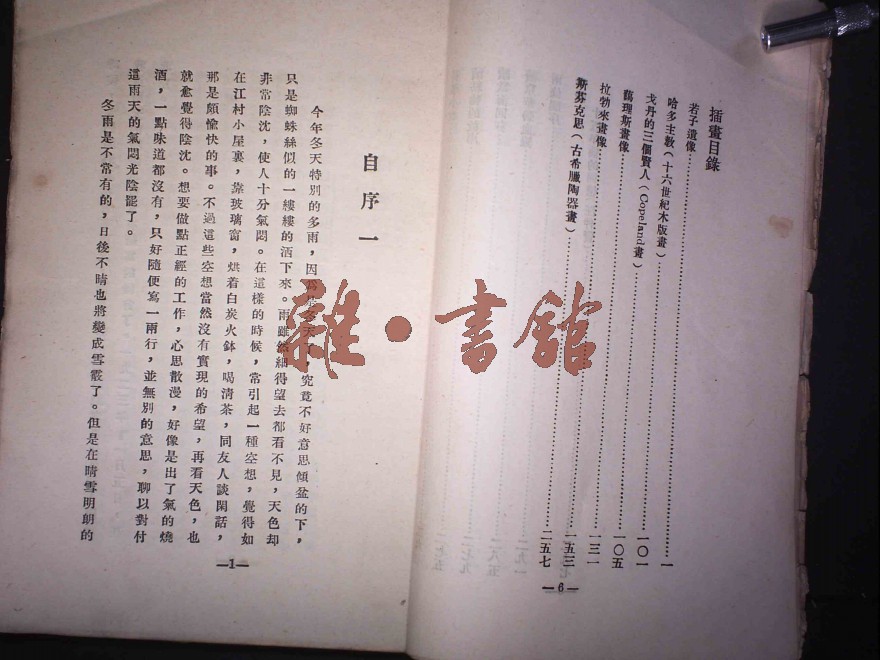 插畫目錄
若子遺像…………一
哈多主教(十六世紀木版畫)…………一〇一
戈丹的三個賢人(Copeland畫)…………一〇五
藹理斯畫像…………一三一
拉勃來畫像…………一五三
斯芬克思(古希臘陶器畫)…………二五七
—6—
自序一
今年冬天特別的多雨,因爲是冬天了,究竟不好意思傾盆的下,
只是蜘蛛絲似的一縷縷的洒下來。雨雖然細得望去都看不見,天色却
非常陰沈,使人十分氣悶。在這樣的時候,常引起一種空想,覺得如
在江村小屋裏,靠玻璃窗,烘着白炭火鉢,喝清茶,同友人談閑話,
那是頗愉快的事。不過這些空想當然沒有實現的希望,再看天色,也
就愈覺得陰沈。想要做點正經的工作,心思散漫,好像是出了氣的燒
酒,一點味道都沒有,只好隨便寫一兩行,並無別的意思,聊以對付
這雨天的氣悶光陰罷了。
冬雨是不常有的,日後不晴也將變成雪霰了。但是在晴雪明朗的
—1—
雜·書館